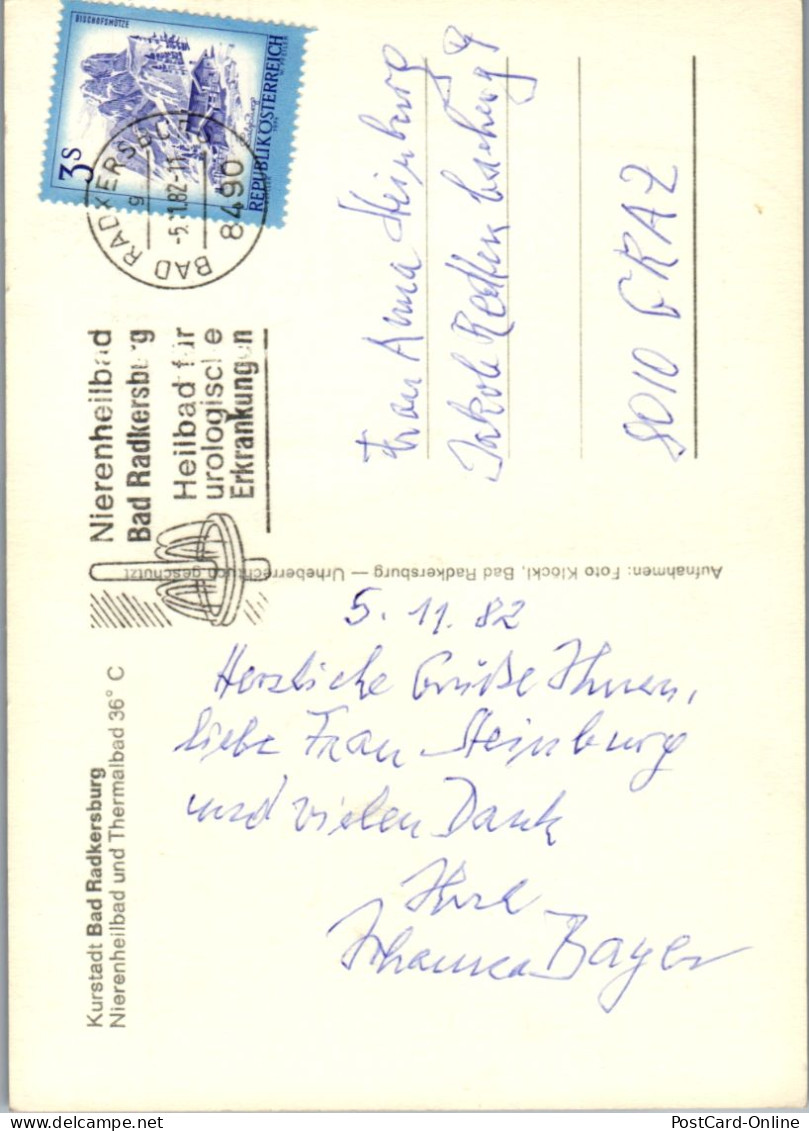 Kurstadt Bad Radkersburg
Nierenheilbad und Thermalbad 36° C
5. 11. 82
Herzliche Grüße Ihnen,
liebe Frau Steinburg
und vielen Dank
Ihre
Johanna Bayer
Aufnahmen: Foto Klöckl, Bad Radkersburg — Urheberrechtlich geschützt
Nierenheilbad
Bad Radkersburg
Heilbad für
urologische
Erkrankungen
BISCHOFSMÜTZE
3 S
REPUBLIK ÖSTERREICH
BAD RADKERSBURG
-5.11.82-11
8490
Frau Anna Steinburg
Jakob Redtenbacherg 9
8010 GRAZ
PostCard-Online